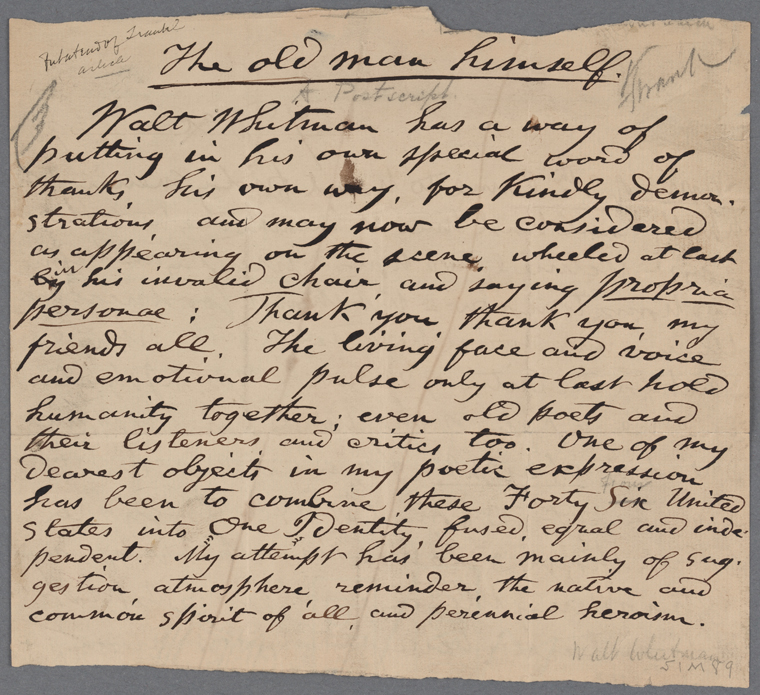 The old man himself.
A Postscript
Frank
Walt Whitman has a way of
putting in his own special word of
thanks, his own way, for kindly demon-
strations, and may now be considered
as appearing on the scene, wheeled at last
in his invalid chair, and saying propria
personae: Thank you, thank you, my
friends all. The living face and voice
and emotional pulse only at last hold
humanity together; even old poets and
their listeners and critics too. One of my
dearest objects in my poetic expression
has been to combine these Forty Six United
States into One Identity, fused, equal and inde-
pendent. My attempt has been mainly of sug-
gestion, atmosphere, reminder, the native and
common spirit of all, and perennial heroism.
Walt Whitman